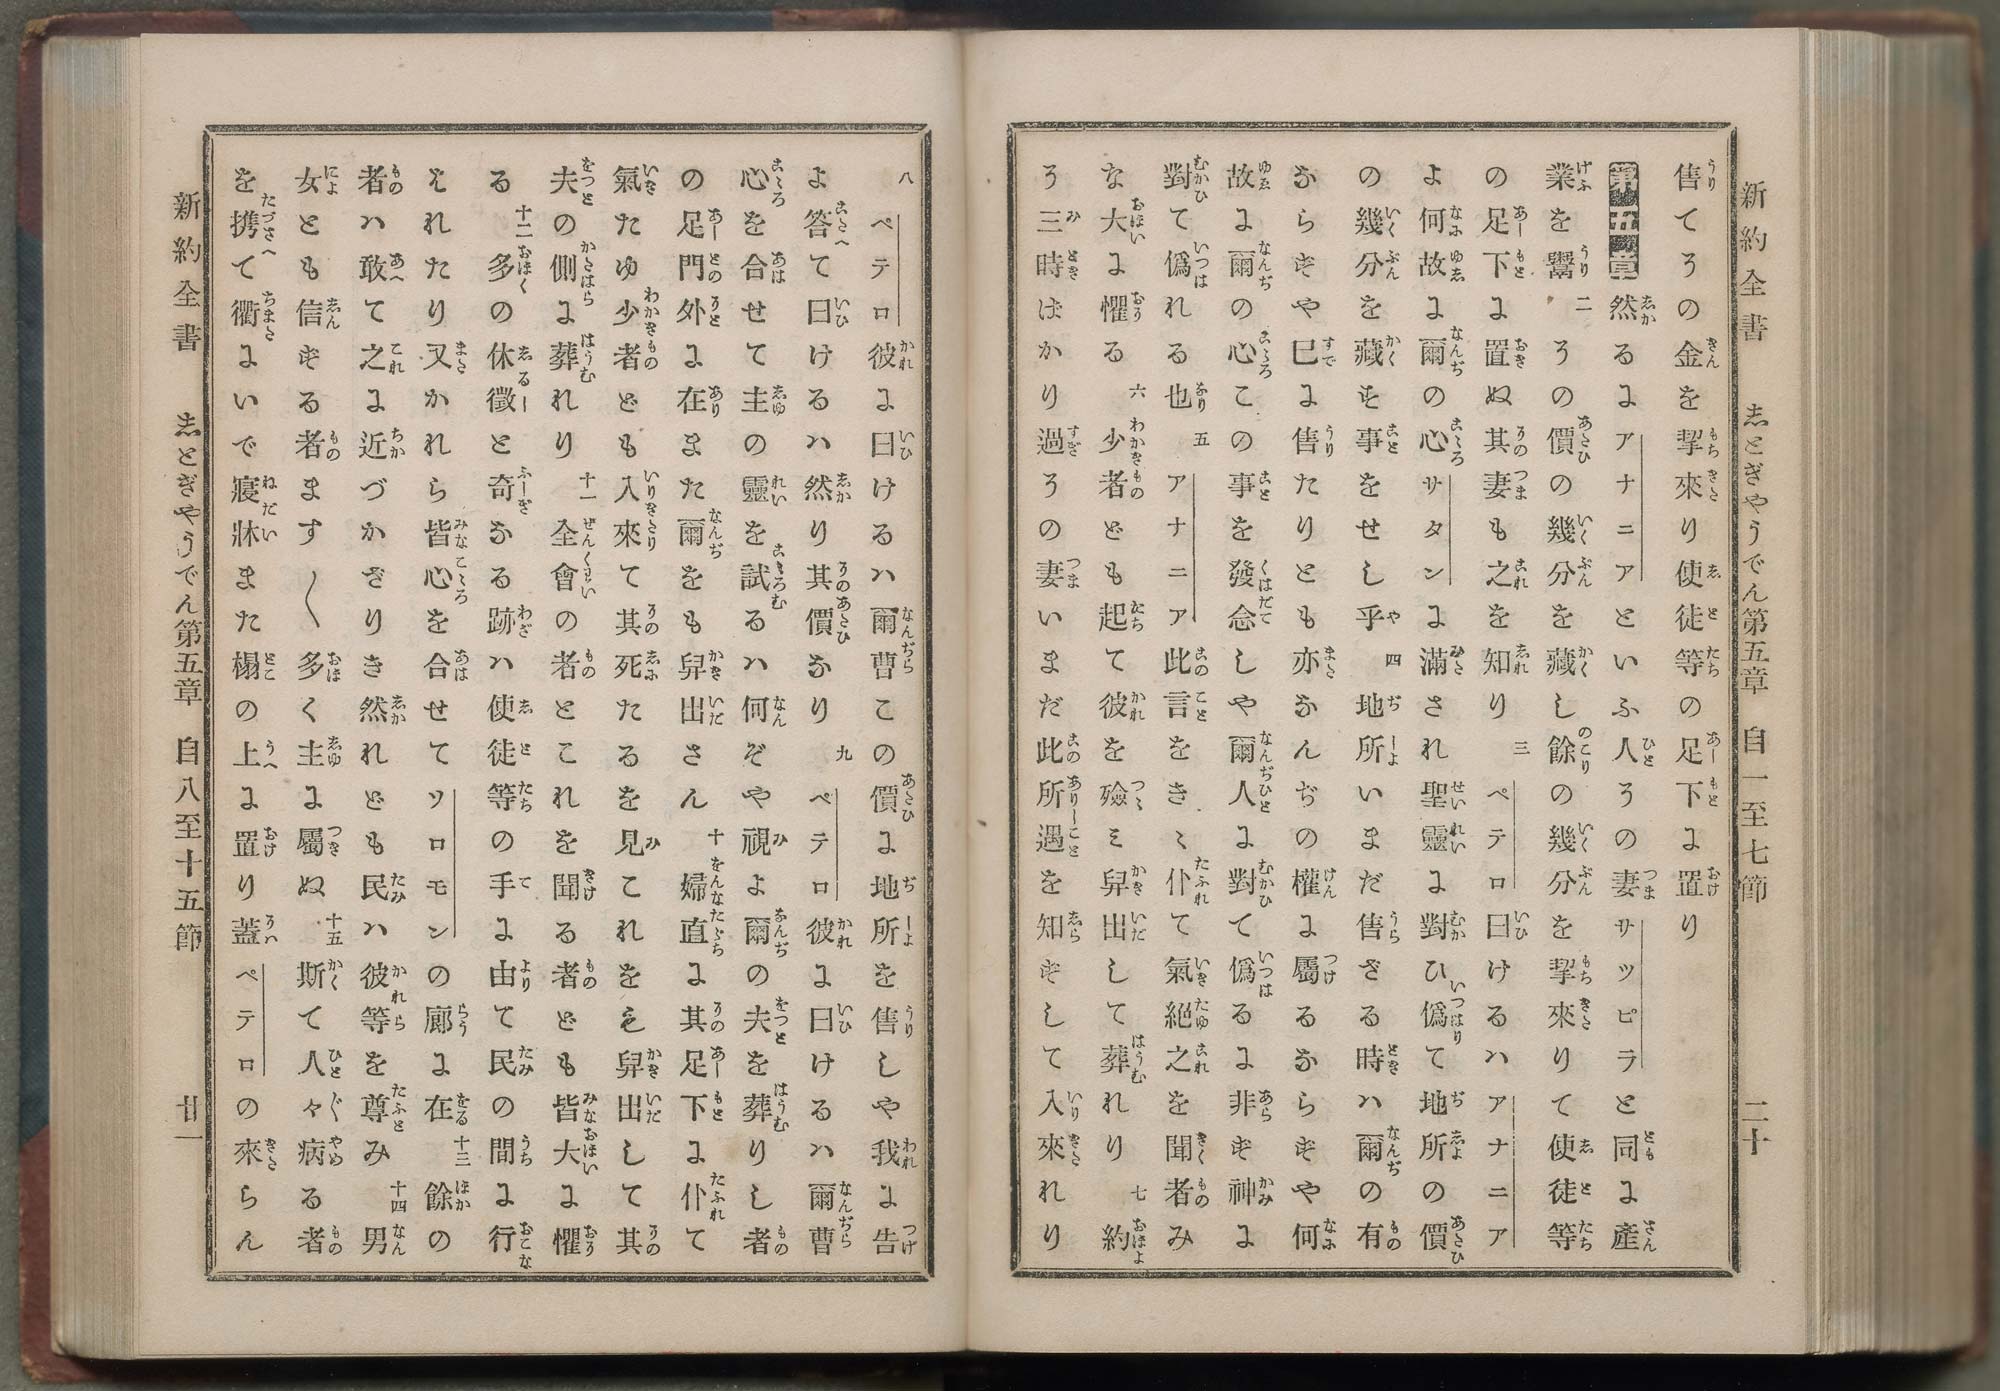 新約全書　志とぎやうでん第五章　自一至七節　二十
售てその金を挈來り使徒等の足下に置り
第五章　然るにアナニアといふ人その妻サツピラと同に產
業を鬻二その價の幾分を藏し餘の幾分を挈來りて使徒等
の足下に置ぬ其妻も之を知り三ペテロ曰けるハアナニア
よ何故に爾の心サタンに滿され聖靈に對ひ僞て地所の價
の幾分を藏す事をせし乎四地所いまだ售ざる時ハ爾の有
ならずや巳に售たりとも亦なんぢの權に屬るならずや何
故に爾の心この事を發念しや爾人に對て僞るに非ず神に
對て僞れる也五アナニア此言をきゝ仆て氣絕之を聞者み
な大に懼る六少者ども起て彼を殮ミ舁出して葬れり七約
そ三時ばかり過その妻いまだ此所遇を知ずして入來れり
八ペテロ彼に曰けるハ爾曹この價に地所を售しや我に告
よ答て曰けるハ然り其價なり九ペテロ彼に曰けるハ爾曹
心を合せて主の靈を試るハ何ぞや視よ爾の夫を葬りし者
の足門外に在また爾をも舁出さん十婦直に其足下に仆て
氣たゆ少者ども入來て其死たるを見これを舁出して其
夫の側に葬れり十一全會の者とこれを聞る者ども皆大に懼
る十二多の休徵と奇なる跡ハ使徒等の手に由て民の間に行
えれたり又かれら皆心を合せてソロモンの廊に在十三餘の
者ハ敢て之に近づかざりき然れども民ハ彼等を尊み十四男
女とも信ずる者ます〱多く主に屬ぬ十五斯て人々病る者
を携て衢にいで寢牀また榻の上に置り蓋ペテロの來らん
新約全書　志とぎやうでん第五章　自八至十五節　廿一